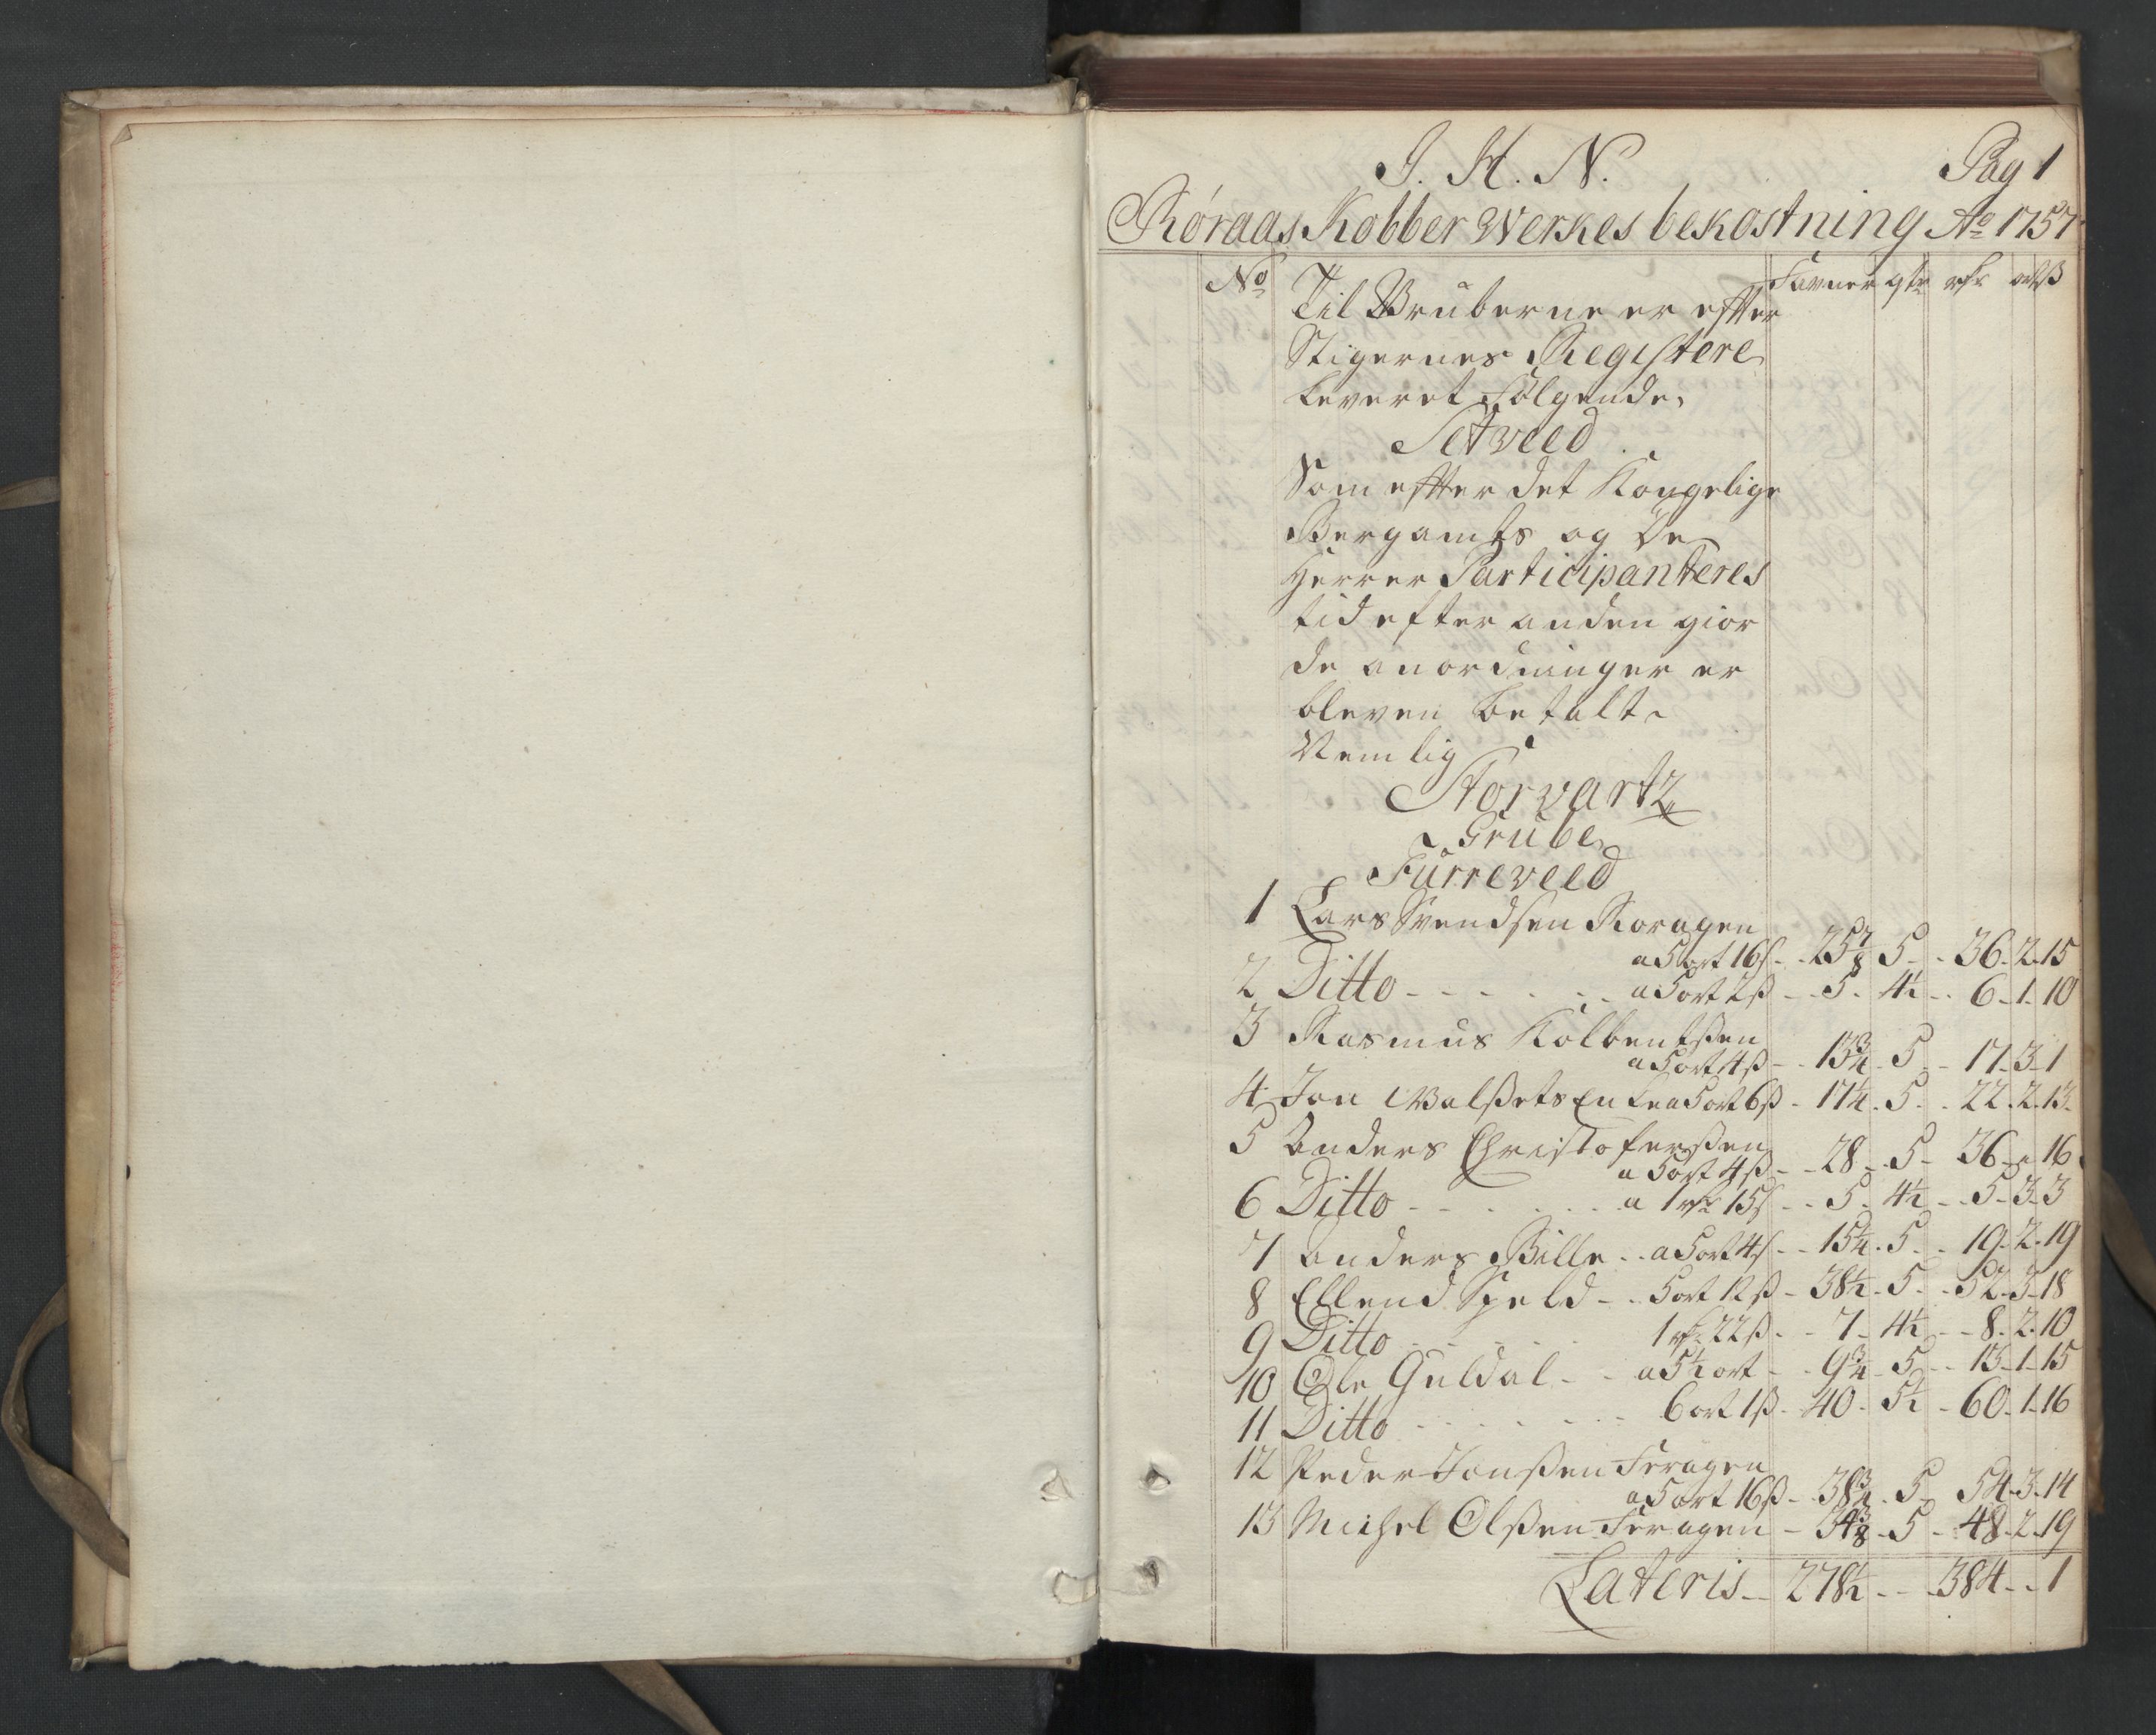 J. H. N. Pag 1
Røraas Kobber Werkes bekostning Ao 1757
No Favner qtr rdr ort ß
Til Gruberne er efter
Stigernes Registere
leveret Følgende
Setveed
Som efter det Kongelige
Bergamts og De
Herrer Participanteres
tid efter anden gior
de anordninger er
bleven betalt
Nemlig
Storvartz
Grube
Fürreveed
1 Lars Svendsen Koragen
a 5 ort 16 ß - 25 7/8 5 - 36 - 2 - 15
2 Ditto - - - a 5 ort 2 ß - 5 - 4 1/2 - 6 - 1 - 10
3 Rasmus Kolbentßen
a 5 ort 4 ß - 13 3/4 - 5 - 17 - 3 - 1
4 Jon Walßets Enke a 5 ort 6 ß - 17 1/4 - 5 - 22 - 2 - 13
5 Anders Christoferßen
a 5 ort 4 ß - 28 - 5 - 36 - " 16
6 Ditto - - - a 1 rdr 15 ß - 5 - 4 1/2 - 5 - 3 - 3
7 Anders Bille - a 5 ort 4 ß - 15 1/4 - 5 - 19 - 2 - 19
8 Ellend Speld - 5 ort 12 ß - 38 1/2 - 5 - 52 - 3 - 18
9 Ditto - - - 1 rdr 22 ß - 7 - 4 1/2 - 8 - 2 - 10
10 Ole Guldal - a 5 1/2 ort - 9 3/4 - 5 - 13 - 1 - 15
11 Ditto - - - 6 ort 1 ß - 40 - 5 1/2 - 60 - 1 - 16
12 Peder Jonßen Feragen
a 5 ort 16 ß - 38 3/4 - 5 - 54 - 3 - 14
13 Michel Olßen Feragen - 34 3/8 - 5 - 48 - 2 - 19
Lateris - 278 1/2 - - 384 - - 1